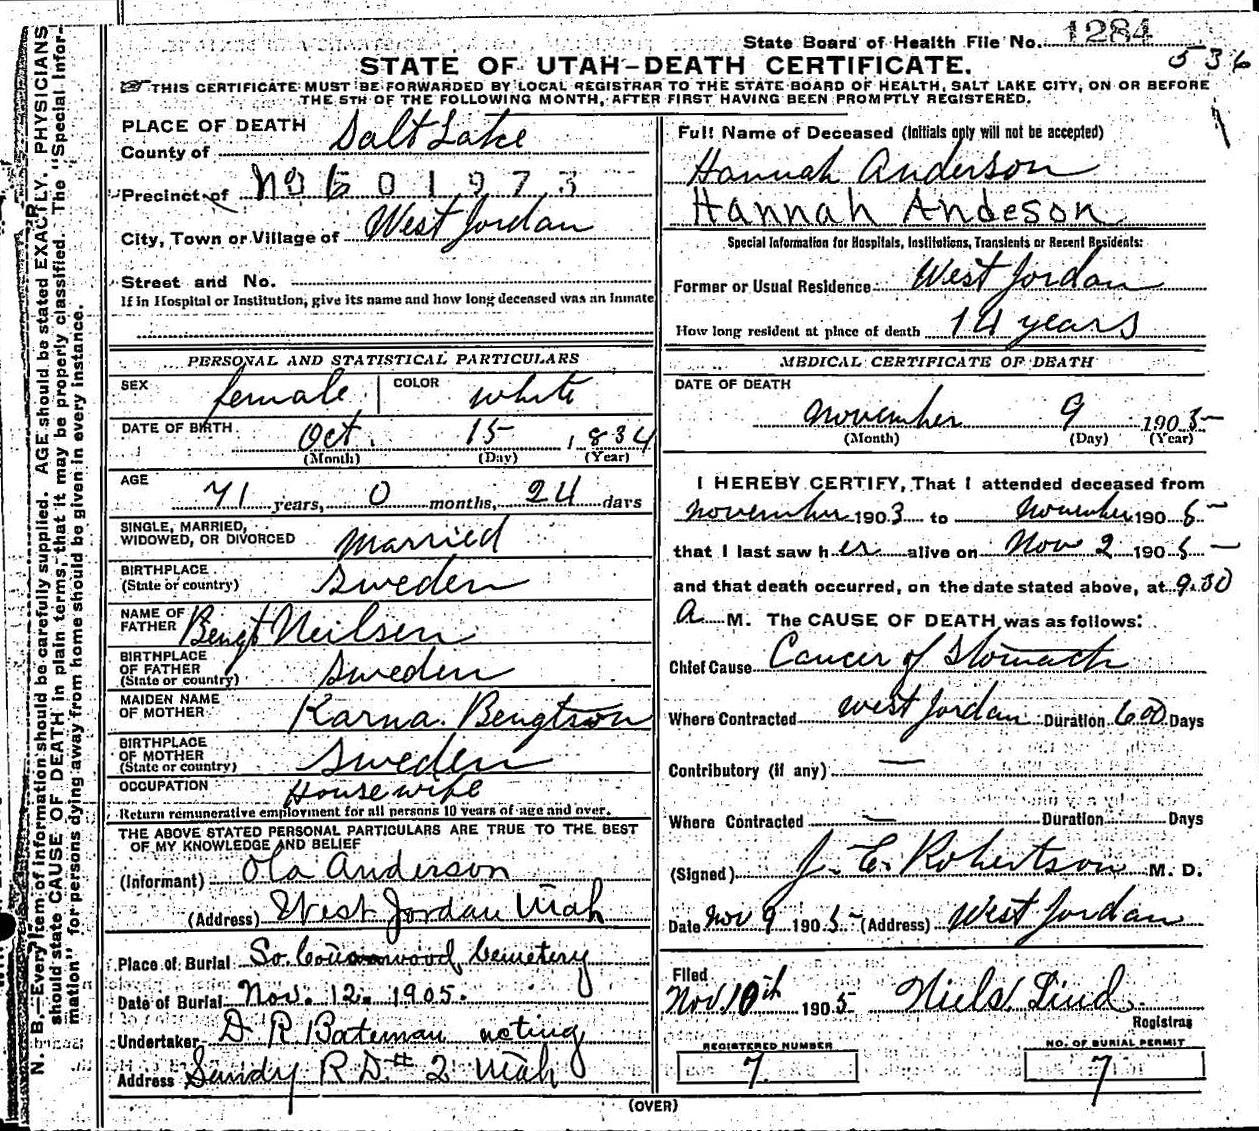 State Board of Health File No. 1284
536
STATE OF UTAH—DEATH CERTIFICATE.
THIS CERTIFICATE MUST BE FORWARDED BY LOCAL REGISTRAR TO THE STATE BOARD OF HEALTH, SALT LAKE CITY, ON OR BEFORE
THE 5TH OF THE FOLLOWING MONTH, AFTER FIRST HAVING BEEN PROMPTLY REGISTERED.
N. B.—Every item of information should be carefully supplied. AGE should be stated EXACTLY. PHYSICIANS
should state CAUSE OF DEATH in plain terms, that it may be properly classified. The "Special Infor-
mation" for persons dying away from home should be given in every instance.
PLACE OF DEATH
County of Salt Lake
Precinct of No 601973
City, Town or Village of West Jordan
Street and No.
If in Hospital or Institution, give its name and how long deceased was an Inmate
PERSONAL AND STATISTICAL PARTICULARS
SEX female COLOR white
DATE OF BIRTH Oct. 15 1834
(Month) (Day) (Year)
AGE
71 years, 0 months, 24 days
SINGLE, MARRIED,
WIDOWED, OR DIVORCED Married
BIRTHPLACE
(State or country) Sweden
NAME OF
FATHER Bengt Neilsen
BIRTHPLACE
OF FATHER
(State or country) Sweden
MAIDEN NAME
OF MOTHER Karna. Bengtson
BIRTHPLACE
OF MOTHER
(State or country) Sweden
OCCUPATION Housewife
Return remunerative employment for all persons 10 years of age and over.
THE ABOVE STATED PERSONAL PARTICULARS ARE TRUE TO THE BEST
OF MY KNOWLEDGE AND BELIEF
(Informant) Ola Anderson
(Address) West Jordan Utah
Place of Burial So. Cottonwood Cemetery
Date of Burial Nov. 12. 1905.
Undertaker D. R. Bateman acting
Address Sandy R D # 2 Utah
Full Name of Deceased (Initials only will not be accepted)
Hannah Anderson
Hannah Andeson
Special Information for Hospitals, Institutions, Transients or Recent Residents:
Former or Usual Residence West Jordan
How long resident at place of death 14 years
MEDICAL CERTIFICATE OF DEATH
DATE OF DEATH
November 9 1905
(Month) (Day) (Year)
I HEREBY CERTIFY, That I attended deceased from
November 1903 to November 1905
that I last saw her alive on Nov 2 1905
and that death occurred, on the date stated above, at 9.30
a M. The CAUSE OF DEATH was as follows:
Chief Cause Cancer of Stomach
Where Contracted West Jordan Duration 600 Days
Contributory (if any) —
Where Contracted — Duration Days
(Signed) J. E. Robertson M. D.
Date Nov 9 1905 (Address) West Jordan
Filed
Nov. 10th 1905 Niels Lind
Registrar
REGISTERED NUMBER
7
NO. OF BURIAL PERMIT
7
(OVER)